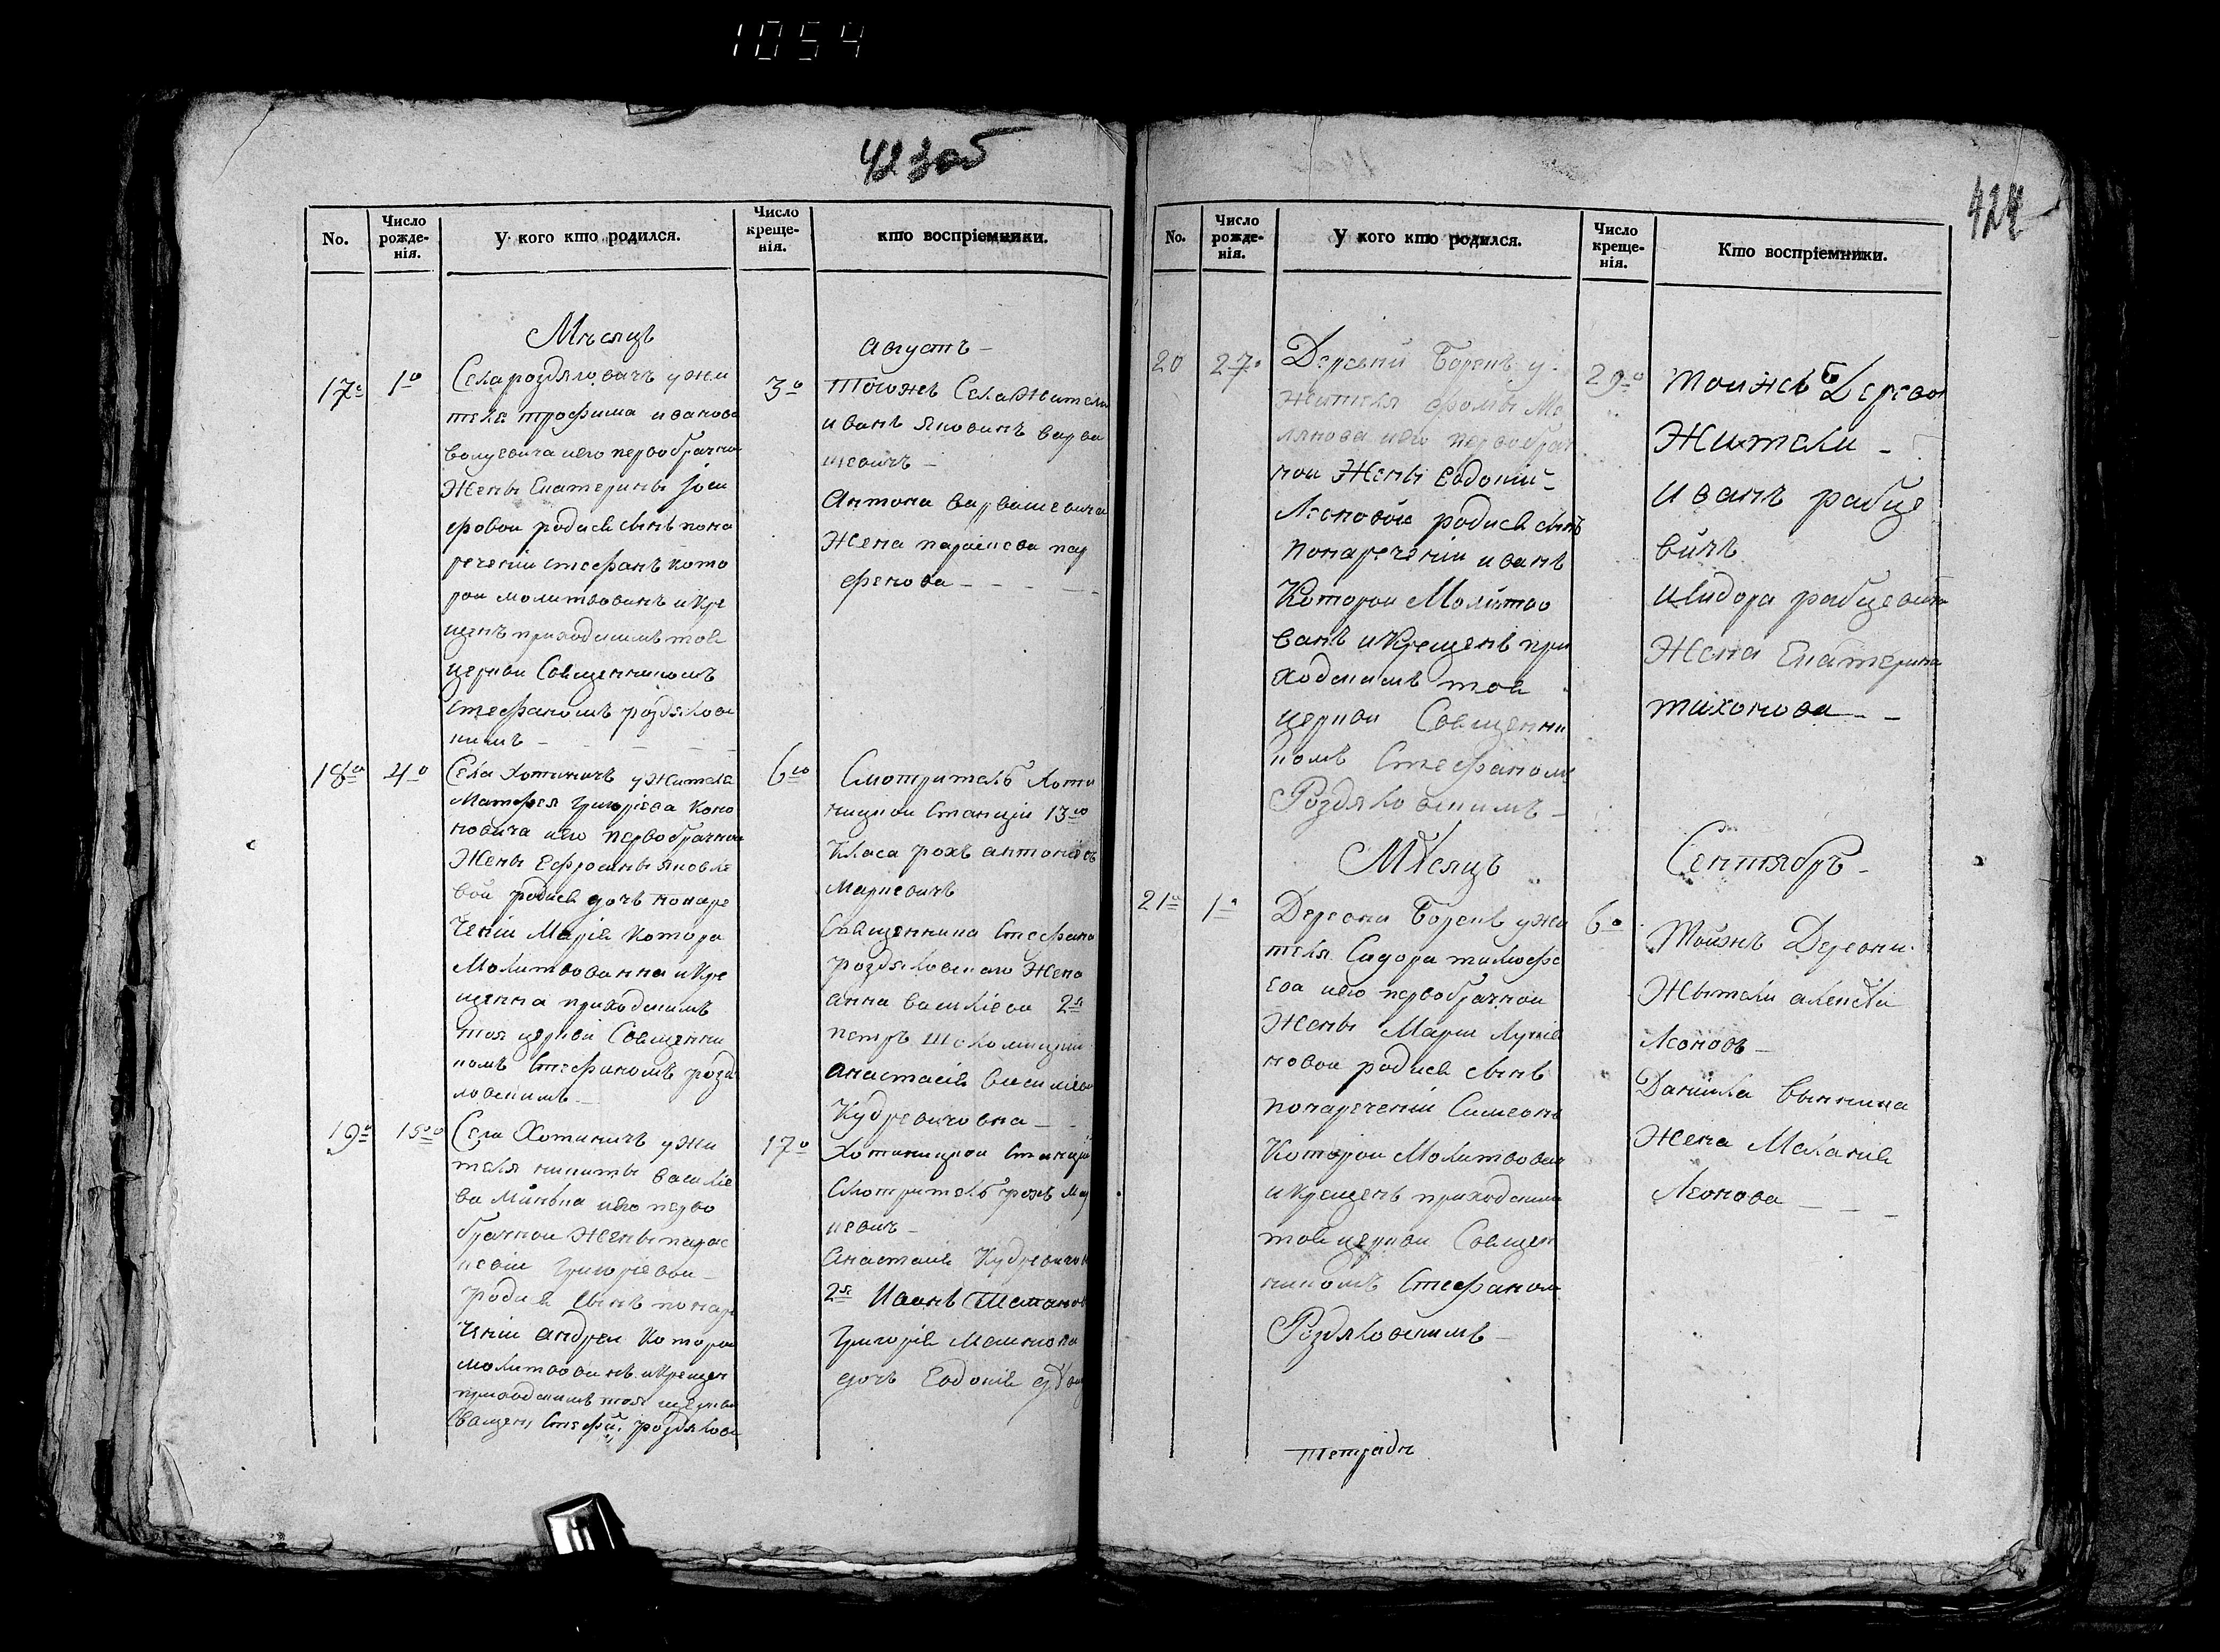 1054
423 об
424
No.
Число рожде-нія.
У кого кто родился.
Число креще-нія.
кто воспріемники.
Мѣсяцъ
Августъ
17о
1о
Села роздяловичъ у жи
теля трофима иванова
его первобрачной
Жены Екатерины Іоси
фовои родися сынъ пона
речении стефанъ кото
рои молитвованъ и кре
щенъ приходскимъ тоя
церкви Священникомъ
Стефаномъ роздялови
3о
Тогожъ Села Жители
иванъ
Антона Варвашевича
Жена параскева пар
фенова
18о
4о
Села Хотиничъ у жителя
Матфея Григорієва Коно
новича его первобрачнои
Жены Ефросины яковле
вои родися дочь понаре
ченіи Марія котора
Молитвованна и Кре
щенна приходскимъ
тоя церкви Священни
комъ Стефаномъ роздя
ловскимъ
6го
Смотритель Хоти
ницкои Станціи 13го
Класа рохъ антоніевъ
Марцевичъ
Священника Стефана
роздяловскаго Жена
анна василіева 2я
петръ
анастасія василіева
Кудревичовна
19о
15го
Села Хотиничъ у жи
теля никиты василіе
ва его перво
брачнои Жены парас
кевіи Григоріевои
родися сынъ понаре
ченіи андреи которои
молитвованъ и крещен
приходскимъ тоя церкви
Священ Стефа. роздялов
17о
Хотиницкои Станціи
Смотритель рохъ Мар
цевичъ
Анастасія Кудревичовн
2я Иванъ
Григорія
дочь Евдокія
No.
Число рожде-нія.
У кого кто родился.
Число креще-нія.
Кто воспріемники.
20
27о
Деревни Борекъ у
Жителя
его первобрач
нои Жены Евдокіи
Леоновои родися сынъ
понареченіи иванъ
Которои Молитво
ванъ и Крещенъ при
ходскимъ тоя
церкви Священни
комъ Стефаномъ
Роздяловскимъ
29го
Тоижъ Деревни
Жители
иванъ рабце
вичъ
исидора рабцевича
Жена Екатерина
тихонова
Мѣсяцъ
Сентябръ
21о
1о
Деревни Борекъ у жи
теля Сидора тимофе
ева его первобрачнои
Жены Марии Лукія
новои родися сынъ
понареченіи Симеонъ
Которои Молитвован
и крещенъ приходским
тоя церкви Священ
никомъ Стефаном
Роздяловскимъ
6о
Тоижъ Деревни
Жители алексѣи
Леоновъ
Даниила
Жена Меланія
Леонова
Тетрадь